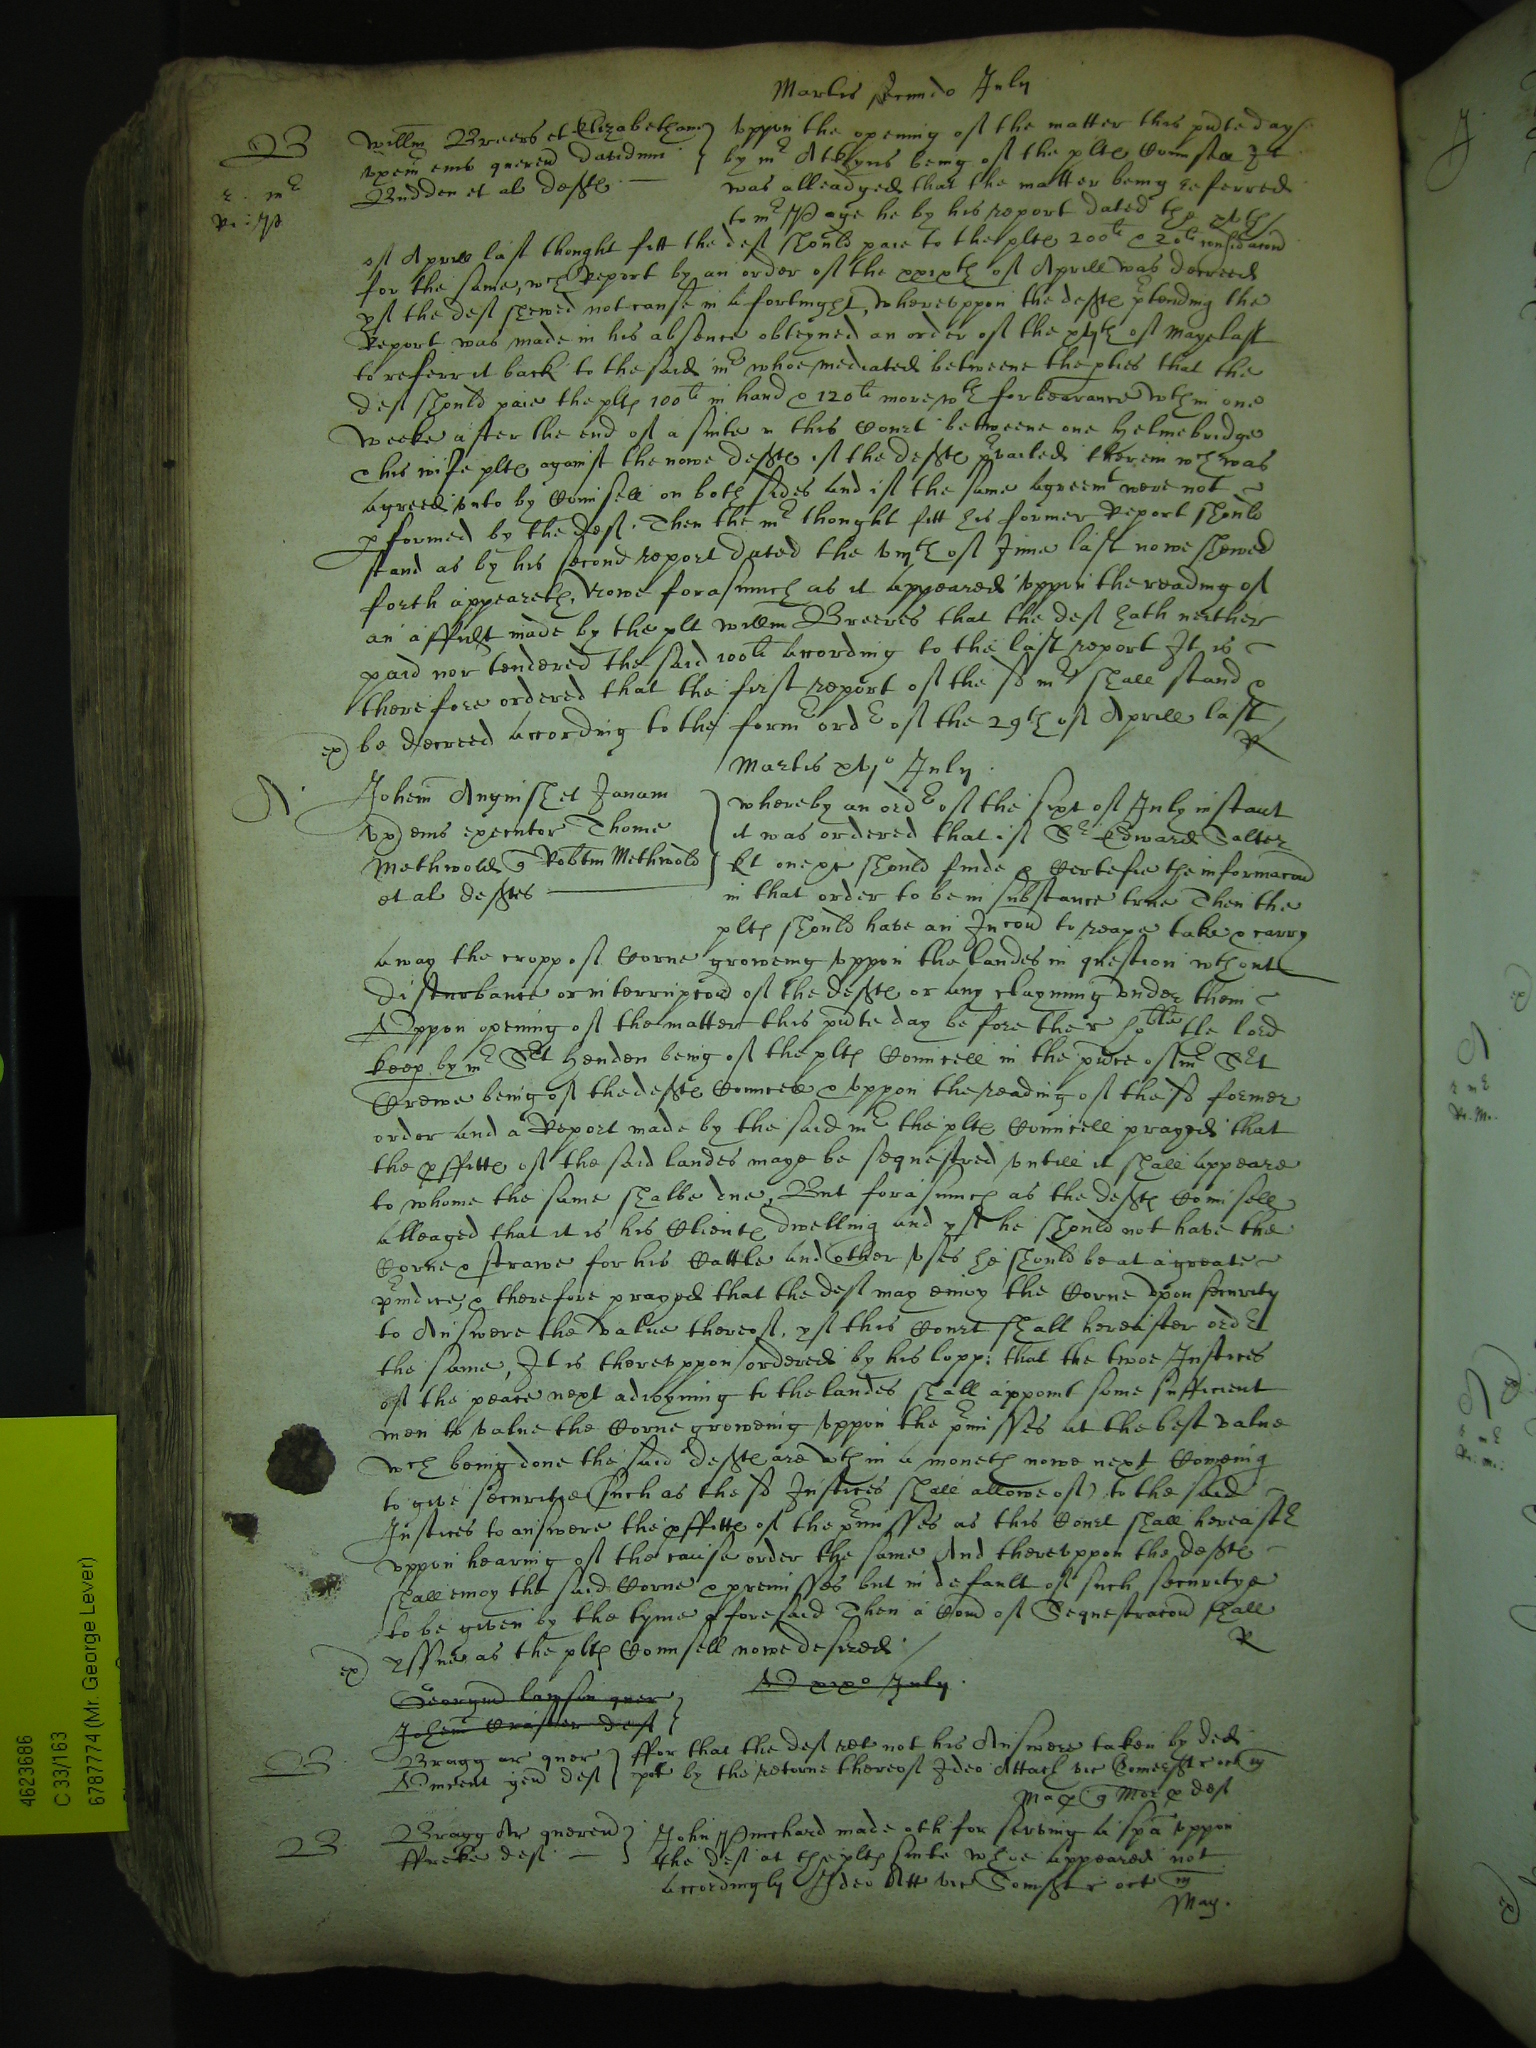 Martis secundo July
B
Willm Breers et Elizabetham
vxem eius queren Davidmi
Budden et al deftes
r. mr
Ri: Pa
Vppon the opening of the matter this pnte daye
by mr Atkyns being of the pltes Counsell It
was alleadged that the matter being referred
to mr Page he by his report dated the xvth
of Aprill last thought fitt the deft should paie to the pltes 200li & 20li considracon
for the same, wch Report by an order of the xxixth of Aprill was decreed
yf the deft shewed not cause in a fortnight, wherevppon the deftes ptending the
Report was made in his absence obteyned an order of the xvjth of Maye last
to referr it back to the said mr whoe mediated betweene the pties that the
deft should paie the pltes 100li in hand & 120li more wth forbearance wthin one
Weeke after the end of a suite in this Court betweene one Helmebridge
& his wife pltes against the nowe deftes if the deftes pvailed therein wch was
agreed vnto by Counsell on both sides and if the same agreemt were not
pformed by the deft. Then the mr thought fitt his former Report should
stand as by his second report dated the viijth of June last nowe shewed
forth appeareth, Nowe forasmuch as it appeared vppon the reading of
an affidt made by the plt Willm Breeres that the deft hath neither
paid nor tendered the said 100li according to the last report It is
therefore ordered that the first report of the sd mr shall stand &
ex) be decreed according to the formr ordr of the 29th of Aprill last
R
Martis xvjo July.
A.
Johem Anguish et Janam
vx) eius executor Thome
Methwold q Robtm Methwold
et al deftes
Whereby an ordr of the sixt of July instant
it was ordered that if Sr Edward Salter
kt one &c should finde & Certefie the informacon
in that order to be in substance true Then the
pltes should have an Incon to reape take & carry
away the cropp of Corne groweing vppon the landes in question wthout
disturbance or interrupcon of the deftes or any clayming vnder them
Vppon opening of the matter this pnte day before the r hoble the lord
keep by mr Srt Henden being of the pltes Councell in the pnce of mr Srt
Crewe being of the deftes Councell & vppon the reading of the sd former
order and a Report made by the said mr the pltes Councell prayed that
the pffittes of the said landes maye be sequestred vntill it shall appeare
to whome the same shalbe due, But forasmuch as the deftes Counsell
alleaged that it is his Clientes dwelling and yf he should not have the
Corne & strawe for his Cattle and other vses he should be at a greate
piudice, & therefore prayed that the deft may enioy the Corne vpon security
to Answere the value thereof, yf this Court shall hereafter ordr
the same, It is therevppon ordered by his lopp: that the twoe Justices
of the peace next adioyning to the landes shall appoint some sufficient
men to value the Corne groweing vppon the pmisses at the best value
wch being done the said deftes are wthin a moneth nowe next Comeing
to give securitye (such as the sd Justices shall allowe of) to the said
Justices to answere the pffittes of the pmisses as this Court shall hereaftr
vppon hearing of the cause order the same And therevppon the deftes
shall enioy the said Corne & premisses but in default of such securitye
to be given by the tyme aforesaid Then a Com of Sequestracon shall
ex) yssue as the pltes Counsell nowe desired
R
Georgiu Lawson quer
Johem Craster deft
AD xxxo July.
B
Bragg ar quer
gen deft
ffor that the deft ret not his Answere taken by ded
pot by the retorne thereof Ideo Attach vic Somersst r oct m
B
Bragg Ar queren
ffreke deft
John Pinchard made oth for serving a spa vppon
the deft at the pltes suite whoe appeared not
accordingly Ideo Att vic Somsst r oct m
May.
4623686
C 33/163
6787774 (Mr. George Lever)